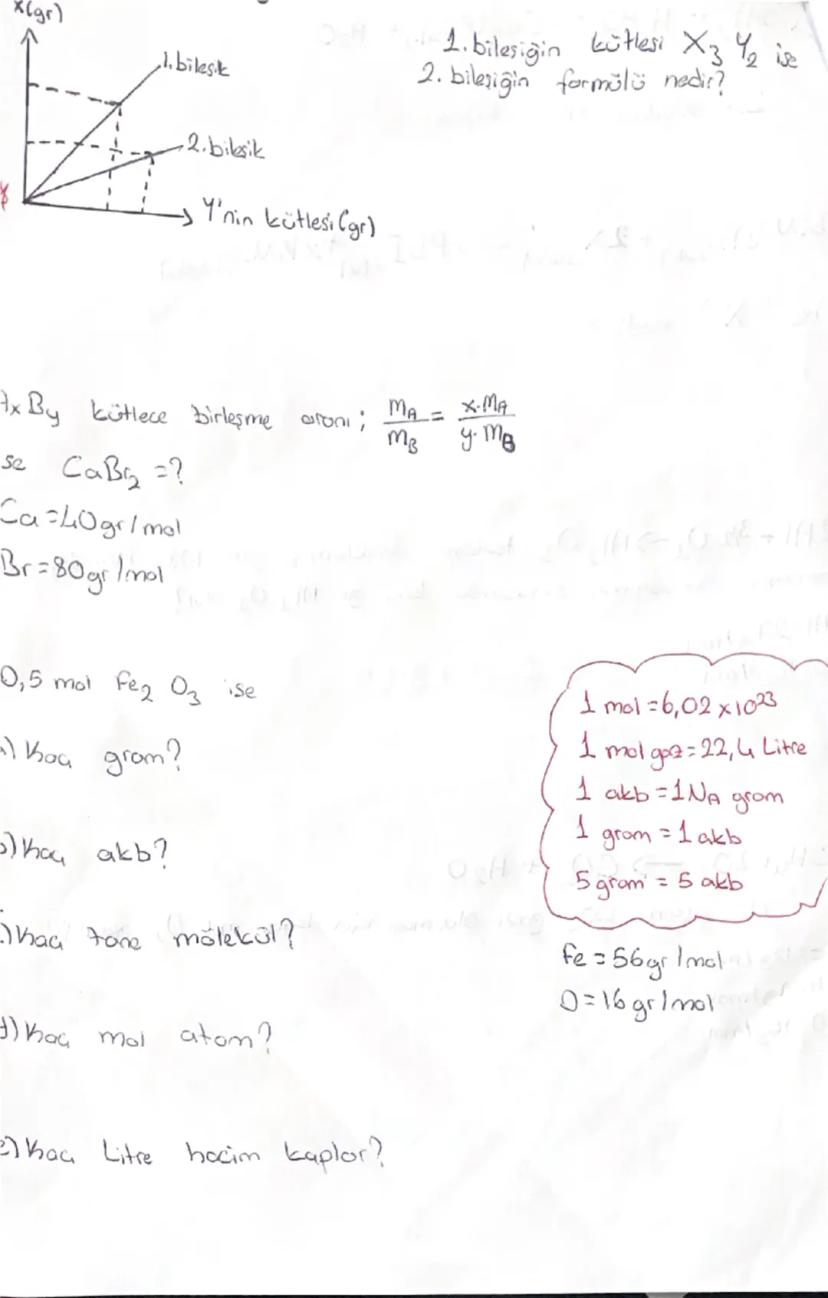 X(gr)
1. bileşik
2. bileşik
Y'nin kütlesi (gr)
1. bileşiğin kütlesi X₃Y₂ ise
2. bileşiğin formülü nedir?
AxBy kütlece birleşme oranı; mA/mB = x·MA/y·MB
se CaBr₂ =?
Ca=40gr/mol
Br=80gr/mol
0,5 mol Fe₂O₃ ise
a) Kaç gram?
b) Kaç akb?
c) Kaç tane mölekül?
d) Kaç mol atom?
e) Kaç Litre hacim kaplar?
1 mol = 6,02 x 10²³
1 mol gaz = 22,4 Litre
1 akb = 1 NA gram
1 gram = 1 akb
5 gram = 5 akb
Fe = 56gr/mol
O = 16 gr/mol